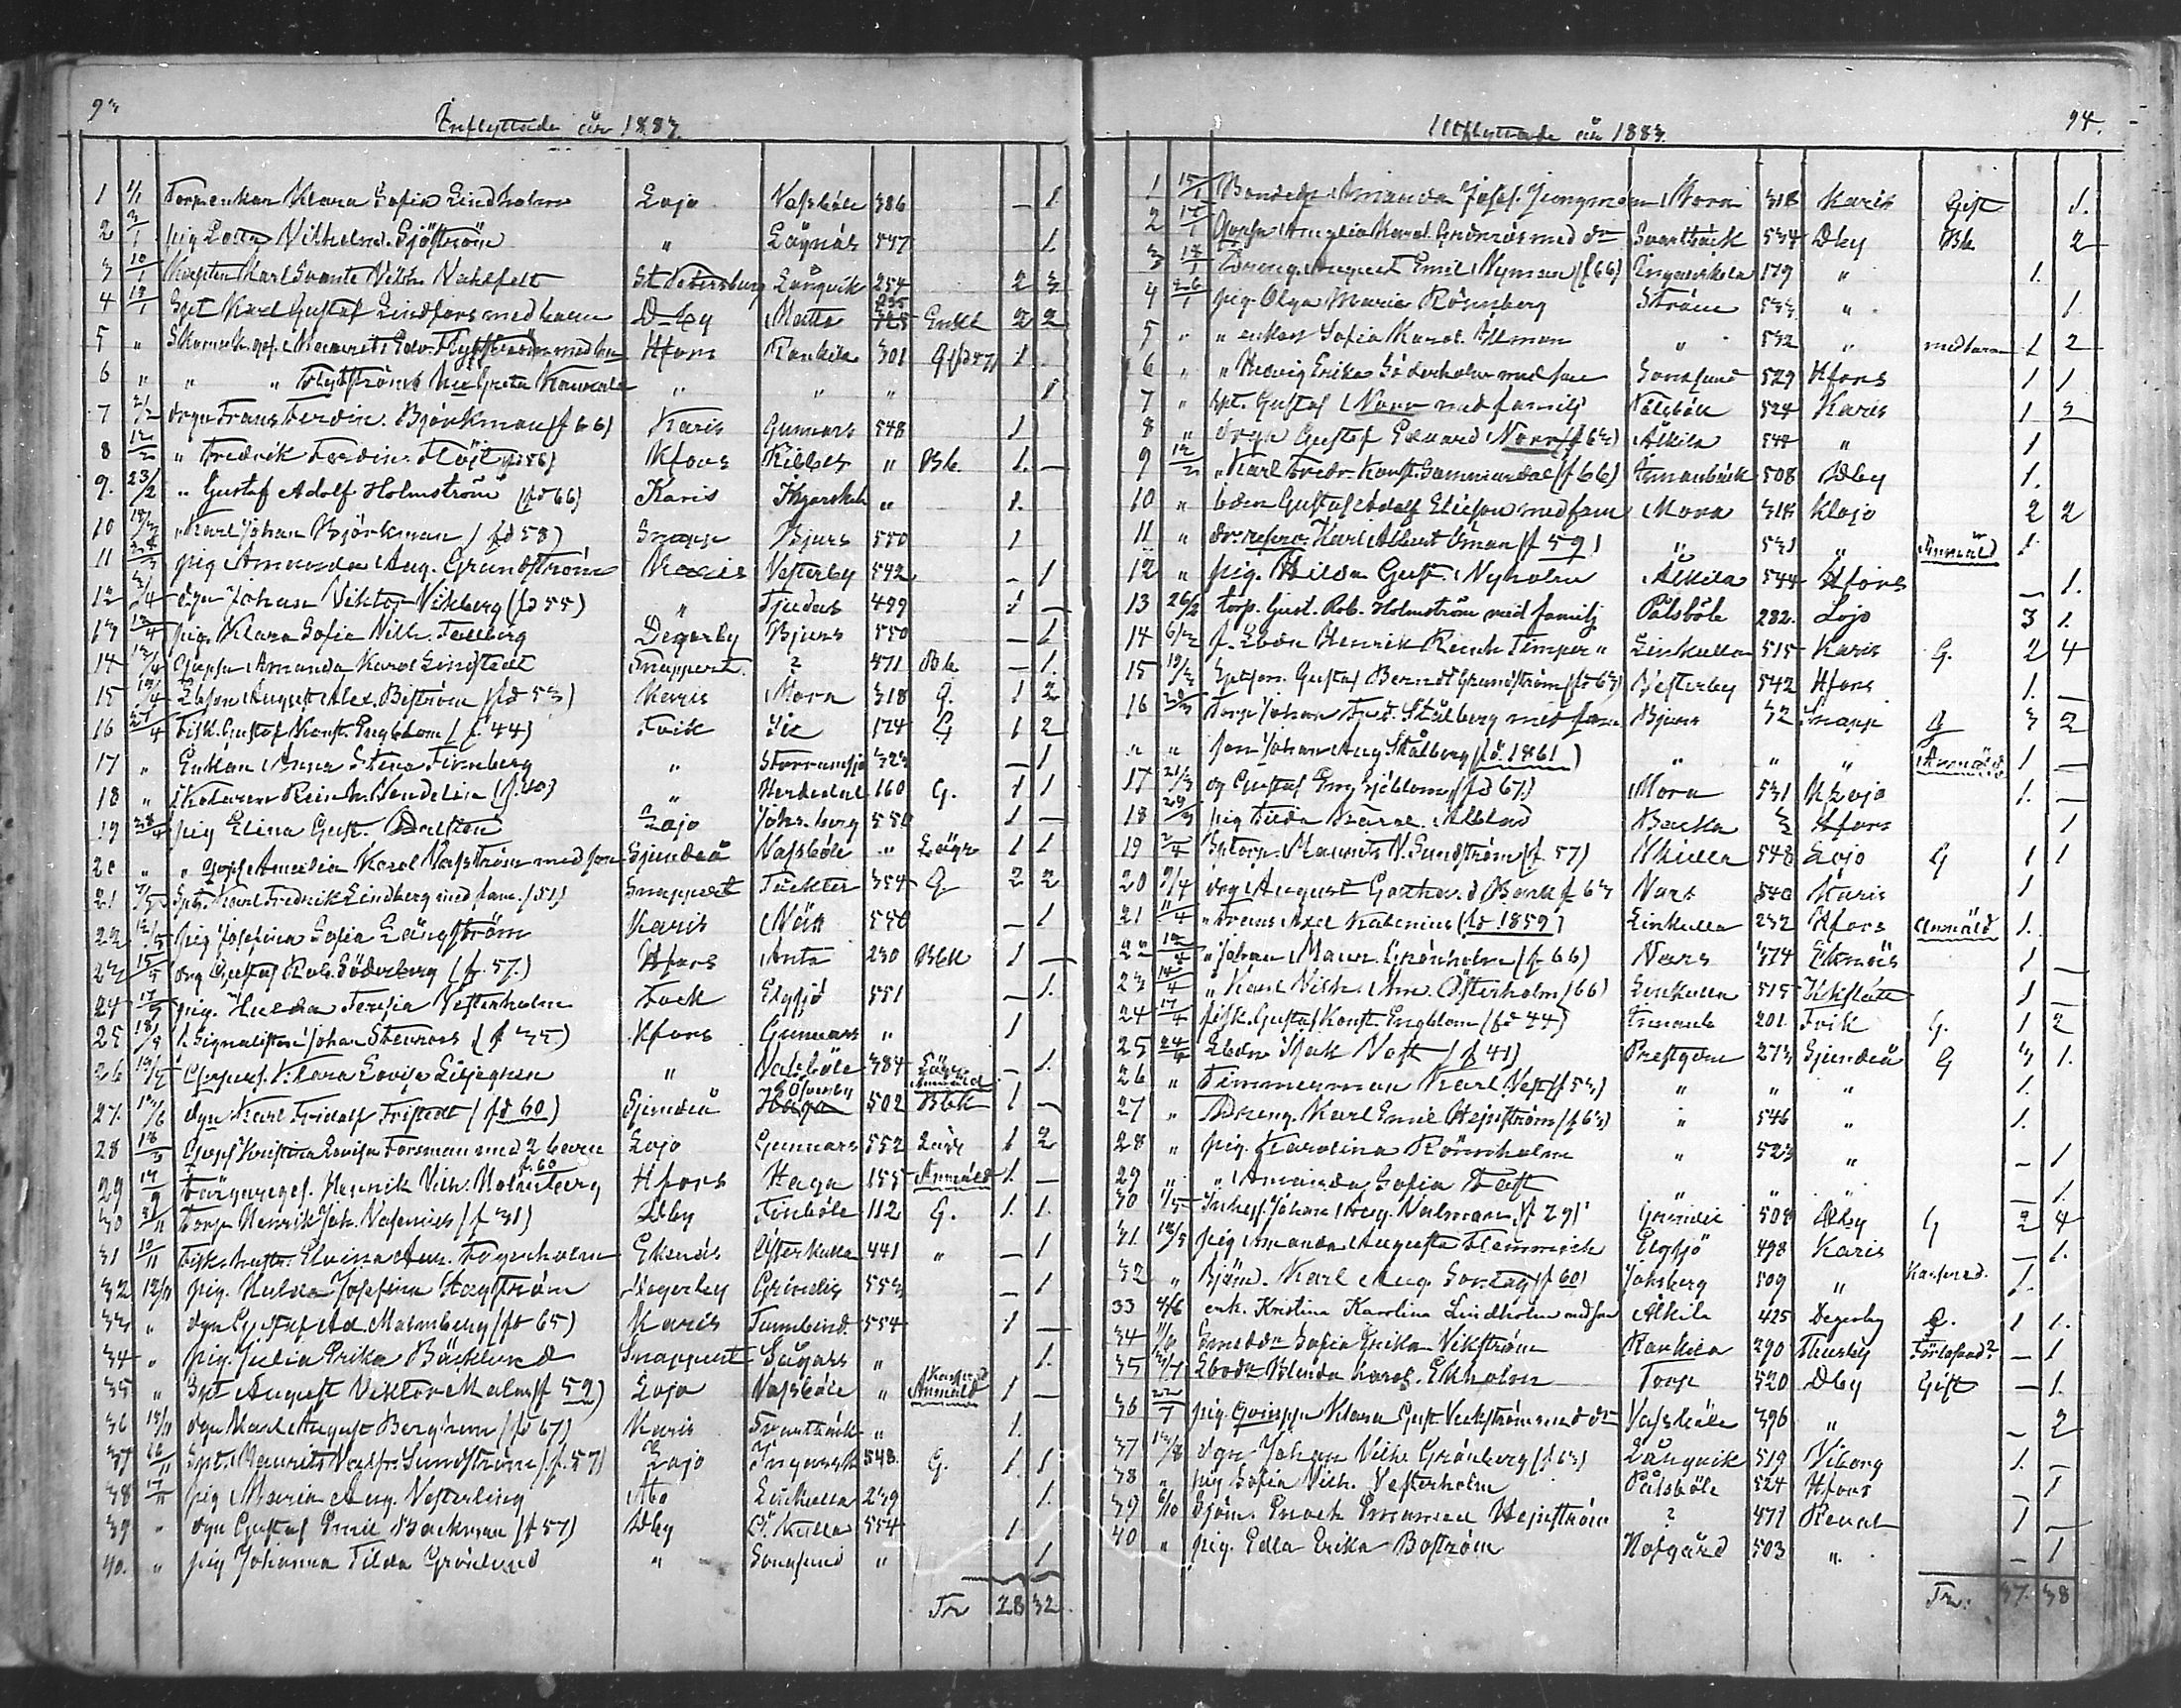 93
Inflyttade år 1883.
1 1/1 Torpenkan Klara Sofia Lindholm Lojo Vassböle 386 – 1.
2 3/1 pig Lotta Vilhelmi. Sjöström " Lågnäs 547 1.
3 10/1 Karl Svante Viktor Vahlfelt St Petersburg Långvik 254 2 3
4 19/1 Spt Karl Gustaf Lindfors med barn D-by Matts 235 Enkl 2 2
5 " Mauritz Edv. Flytström med Hfors Rankila 301 1.
6 " " " Flytströms hu Greta " " " 1
7 21/2 drgn Frans Ferdin. Björkman (f 66) Karis Gunnars 548 1
8 12/2 " Fredrik Ferdin. Flöjt (fd 56) Hfors Ribbes " Bk 1. –
9. 23/2 " Gustaf Adolf Holmström (fd 66) Karis " 1.
10 18/3 " Karl Johan Björkman (fd 58) Snapp Bjurs 550 1
11 28/3 pig Amanda Aug. Grundström Karis Vesterby 542 – 1
12 3/4 dgn Johan Viktor Vikberg (fd 55) " Tjudas 499 1 –
13 12/4 pig. Klara Sofia Vilh. Fellberg Degerby Bjurs 550 – 1
14 Amanda Karol Lindstedt Snappert. ? 471 Bk – 1.
15 August Alex. Biström (fd 53) Karis Mora 318 G. 1 2
16 27/4 Fisk. Gustaf Konst. Engblom (f. 44) Fvik 174 G 1 2
17 " Enkan Anna Stina Firnberg " Storramsjö 323 – 1
18 " Rein h. Vendelin (f. 40) " Herdedal 160 G. 1 1
19 28/4 pig Elina Gust. Lojo Johs. berg 550 1 –
20 " " Amalia Karol Vasström med son Sjundeå Vassböle " Läge 1 1
21 7/5 Spt. Karl Fredrik Lindberg med fam. (51) Snappert Täckter 354 G. 2 2
22 12/5 pig Josefina Sofia Långström Karis Näs 550 – 1
23 15/5 drg Gustaf Rob. Söderberg (f. 57.) Hfors Anta 230 Bek 1 –
24 17/5 pig. Hulda Teresia Vesterholm Esbo Elgsjö 551 – 1.
25 18/5 Signalisten Johan Stenroos (f 35) Hfors Gunnars " 1
26 Klara Lovisa Liljegren " Vassböle 384 Läge – 1.
27. 13/6 dgn Karl Fridolf Fristedt (fd 60) Sjundeå Haga 502 Anmäld Bek 1 –
28 18/9 Kristina Lovisa Forsman med 2 barn Lojo Gunnars 552 Läge 1 2
29 19/9 Henrik Vilh. Holmberg f. 60 Hfors Haga 155 Anmäld 1. –
30 3/11 Torp. Henrik Joh. Vasenius (f 31) Dby Finböle 112 G. 1. 1.
31 10/11 Fisk. Elvina Am. Fagerholm Ekenäs Österkulla 441 " – 1
32 12/11 pig. Hulda Josefina Hagström Degerby Grindis 553 – 1
33 " dgn Gustaf Ad. Malmberg (fd 65) Karis 554 1 –
34 " pig. Julia Erika Bäcklund Snappert Sågars " 1.
35 " Spt August Viktor Malm (f 59) Lojo Vassböle " Anmäld 1 –
36 15/11 dgn Karl August Bergman (fd 67) Karis Svartbäck " 1.
37 16/11 Spt. Maurits Valfr. Sundström (f. 57) Lojo Ingarsk 548. G. 1. 1
38 17/11 pig Maria Aug. Vesterling Åbo Linkulla 239 1.
39 " dgn Gustaf Emil Backman (f 57) Dby Ö. kulla 554 1.
40. " pig Johanna Tilda Grönlund " Sonasund " 1
Tr 28 32.
94.
Utflyttade år 1883.
1 15/1 Amanda Josef. Jungman Mora 318 Karis Gift 1.
2 17/1 Amalia Karol. Grönroos med dr Svartbäck 534 Dby Bk 2
3 17/1 Dreng. August Emil Nyman (f 66) Ingarskila 179 " 1.
4 26/1 pig. Olga Maria Rönnberg Ström 533 " 1
5 " " enkan Sofia Karol. Allman " 532 " med barn 1 2
6 " " Hedvig Erika Söderholm med son Sonasund 529 Hfors 1 1
7 " Spt. Gustaf Norr med familj Pålsböle 524 Karis 1 3
8 " drgn Gustaf Edvard Norr (f 63) Älkila 544 " 1
9 12/2 " Karl Fredr. Konst. Sammardal (f 66) Finnanbäck 508 Dby 1.
10 " Gustaf Adolf Elieson med fam Mora 318 Klojo 2 2
11 " Karl Albert Öman (f 59) " 531 " Anmäld 1.
12 " pig. Hilda Gust. Nyholm Älkila 544 Hfors – 1.
13 26/2 torp. Gust. Rob. Holmström med familj Pålsböle 282. Lojo 3 1.
14 6/3 Henrik Reinh Timper " Linkulla 515 Karis G. 2 4
15 19/3 Gustaf Berndt Grundström (fd 63) Vesterby 542 Hfors 1. –
16 20/3 Torp Johan Fred. Stålberg med fam Bjurs 32 Snapp G 3 2
" " son Johan Aug Stålberg (fd. 1861) " " " Anmäld 1 –
17 21/3 dg Gustaf Eng Sjöblom (fd 67.) Mora 531 Klojo 1. –
18 29/3 pig Tilda Karol. Ahlblad Backa Hfors 1
19 2/4 Maurits V. Sundström (f. 57) 548 Lojo G 1 1
20 9/4 drg August Gotthard Bank f 63 Vars 540 Karis 1
21 11/4 " Frans Axel Kalenius (fd 1859) Linkulla 232 Hfors Anmäld 1.
22 12/4 " Johan Maur. Grönholm (f 66) Vars 374 Ekenäs 1 –
23 14/4 " Karl Vilh. Am. Österholm (66) Linkulla 515 Kkslätt 1 –
24 17/4 fisk. Gustaf Konst. Engblom (fd 44) 201 Fvik G. 1 2
25 24/4 Isak Vest (f 41) Prestgden 273 Sjundeå G 3 1.
26 " Timmerman Karl Vest (f 53) " " " 1.
27 " Dreng. Karl Emil Hejnström (f 63) " 546 " 1.
28 " pig. Karolina Rönnholm " 523 " – 1
29 " " Amanda Sofia Fast " " " – 1.
30 1/5 Inhys. Johan Aug. Valman (f 29) Grindie 508 Dby G 2 4
31 12/5 pig Amanda Augusta Flemmich Elgsjö 498 Karis – 1.
32 " Sjöm. Karl Aug. Sontag (f 60) Johsberg 509 " 1.
33 4/6 enk. Kristina Karolina Lindholm med son Älkila 425 Degerby E. 1 1.
34 11/6 Sofia Erika Vikström Rankila 290 Thusby Förlofvad? – 1
35 3/7 Blenda Karol. Ekholm Torp 520 Dby Gift – 1.
36 22/7 pig. Klara Gust. Veckström med dr Vassböle 396 " – 2
37 13/8 dgn Johan Vilh. Grönberg (f 63) Långvik 519 Viborg 1. –
38 " pig Sofia Vilh. Vesterholm Pålsböle 524 Hfors – 1
39 6/10 Sjöm. Enoch Emanuel Hejnström ? 471 Reval 1 –
40 " pig. Edla Erika Boström Hofgård 503 " – 1
Tr. 37. 38